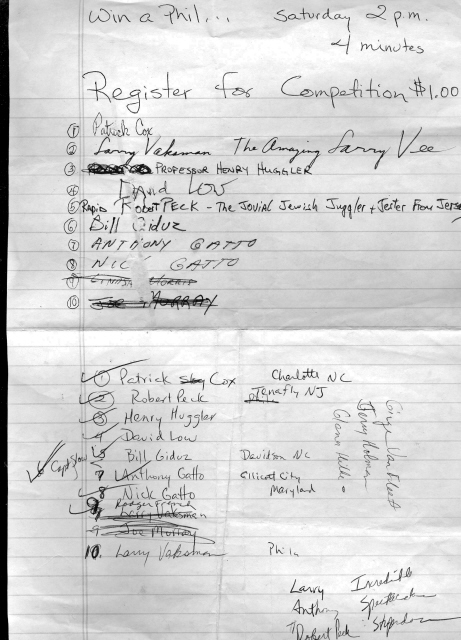 Win a Phil... Saturday 2 p.m.
4 minutes
Register for Competition $1.00
① Patrick Cox
② Larry Vaksman The Amazing Larry Vee
③ PROFESSOR HENRY HUGGLER
④ David LOW
⑤ RAPID ROBERT PECK - THE JOVIAL JEWISH JUGGLER + JESTER FROM JERSE
⑥ Bill Giduz
⑦ ANTHONY GATTO
⑧ NICK GATTO
⑨
⑩ JOE MURRAY
① Patrick Cox Charlotte NC
② Robert Peck Tenafly NJ
③ Henry Huggler
4 David Low
5 Bill Giduz Davidson NC
7 Anthony Gatto Ellicott City
8 Nick Gatto Maryland
9 Larry Vaksman
9 Joe Murray
10. Larry Vaksman Phila
Larry Incredible
Anthony
Robert Peck